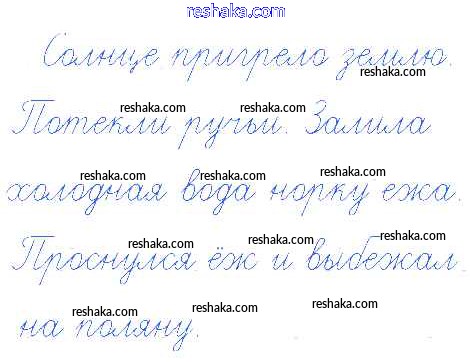 reshaka.com
Солнце пригрело землю.
reshaka.com
reshaka.com reshaka.com
Потекли ручьи. Залила
reshaka.com reshaka.com reshaka.com
холодная вода норку ежа.
reshaka.com reshaka.com reshaka.com
Проснулся ёж и выбежал
reshaka.com reshaka.com reshaka.com
на поляну.